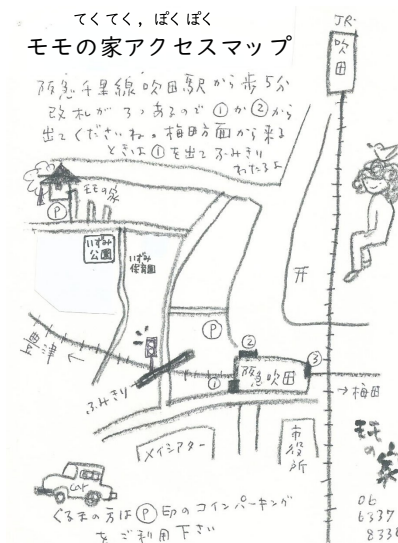 てくてく，ぽくぽく
モモの家アクセスマップ
JR
吹田
阪急千里線吹田駅から歩5分
改札が3つあるので①か②から
出てくださいね。梅田方面から来る
ときは①を出てふみきり
わたるよ
モモの家
P
いずみ
公園
いずみ
保育園
P
②
③
①
阪急吹田
豊津
←
→梅田
ふみきり
メイシアター
市役所
モモ
の
家
06
6337
8330
car
くるまの方はⓅ印のコインパーキング
をご利用下さい